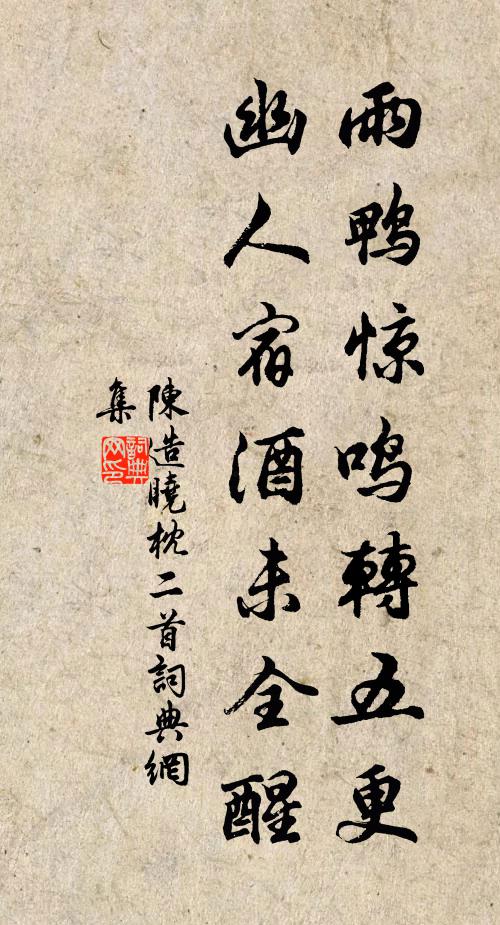 雨鸭惊鸣轉五更
幽人宿酒未全醒
陳造曉枕二首詞典網
集
詞典
网印